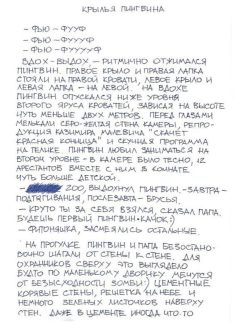 КРЫЛЬЯ ПИНГВИНА
– ФЬЮ – ФУУФ
– ФЬЮ – ФУУУУФ
– ФЬЮ – ФУУУУУФ
ВДОХ – ВЫДОХ – РИТМИЧНО ОТЖИМАЛСЯ
ПИНГВИН. ПРАВОЕ КРЫЛО И ПРАВАЯ ЛАПКА
СТОЯЛИ НА ПРАВОЙ КРОВАТИ, ЛЕВОЕ КРЫЛО И
ЛЕВАЯ ЛАПКА – НА ЛЕВОЙ. НА ВДОХЕ
ПИНГВИН ОПУСКАЛСЯ НИЖЕ УРОВНЯ
ВТОРОГО ЯРУСА КРОВАТЕЙ, ЗАВИСАЯ НА ВЫСОТЕ
ЧУТЬ МЕНЬШЕ ДВУХ МЕТРОВ. ПЕРЕД ГЛАЗАМИ
МЕЛЬКАЛИ СЕРО-ЖЕЛТАЯ СТЕНА КАМЕРЫ, РЕПРО-
ДУКЦИЯ КАЗИМИРА МАЛЕВИЧА "СКАЧЕТ
КРАСНАЯ КОННИЦА" И СКУЧНАЯ ПРОГРАММА
НА ТЕЛИКЕ. ПИНГВИН ЛЮБИЛ ЗАНИМАТЬСЯ НА
ВТОРОМ УРОВНЕ – В КАМЕРЕ БЫЛО ТЕСНО, 12
АРЕСТАНТОВ ВМЕСТЕ С НИМ В КОМНАТЕ
ЧУТЬ БОЛЬШЕ ДЕТСКОЙ.
– 200, ВЫДОХНУЛ ПИНГВИН – ЗАВТРА –
ПОДТЯГИВАНИЯ, ПОСЛЕЗАВТРА – БРУСЬЯ.
– КРУТО ТЫ ЗА СЕБЯ ВЗЯЛСЯ, СКАЗАЛ ПАПА.
БУДЕШЬ ПЕРВЫЙ ПИНГВИН-КАЧОК:)
– ФИТОНЯШКА, ЗАСМЕЯЛИСЬ ОСТАЛЬНЫЕ.
НА ПРОГУЛКЕ ПИНГВИН И ПАПА БЕЗОСТАНО-
ВОЧНО ШАГАЛИ ОТ СТЕНЫ К СТЕНЕ. ДЛЯ
ОХРАННИКОВ СВЕРХУ ЭТО ВЫГЛЯДЕЛО
БУДТО ПО МАЛЕНЬКОМУ ДВОРИКУ МЕЧУТСЯ
ОТ БЕЗЫСХОДНОСТИ ЗОМБИ:) ЦЕМЕНТНЫЕ
КОРЯВЫЕ СТЕНЫ, РЕШЕТКА НА НЕБЕ И
НЕМНОГО ЗЕЛЕНЫХ ЛИСТОЧКОВ НАВЕРХУ
СТЕН. ДАЖЕ В ЦЕМЕНТЕ ИНОГДА ЧТО-ТО